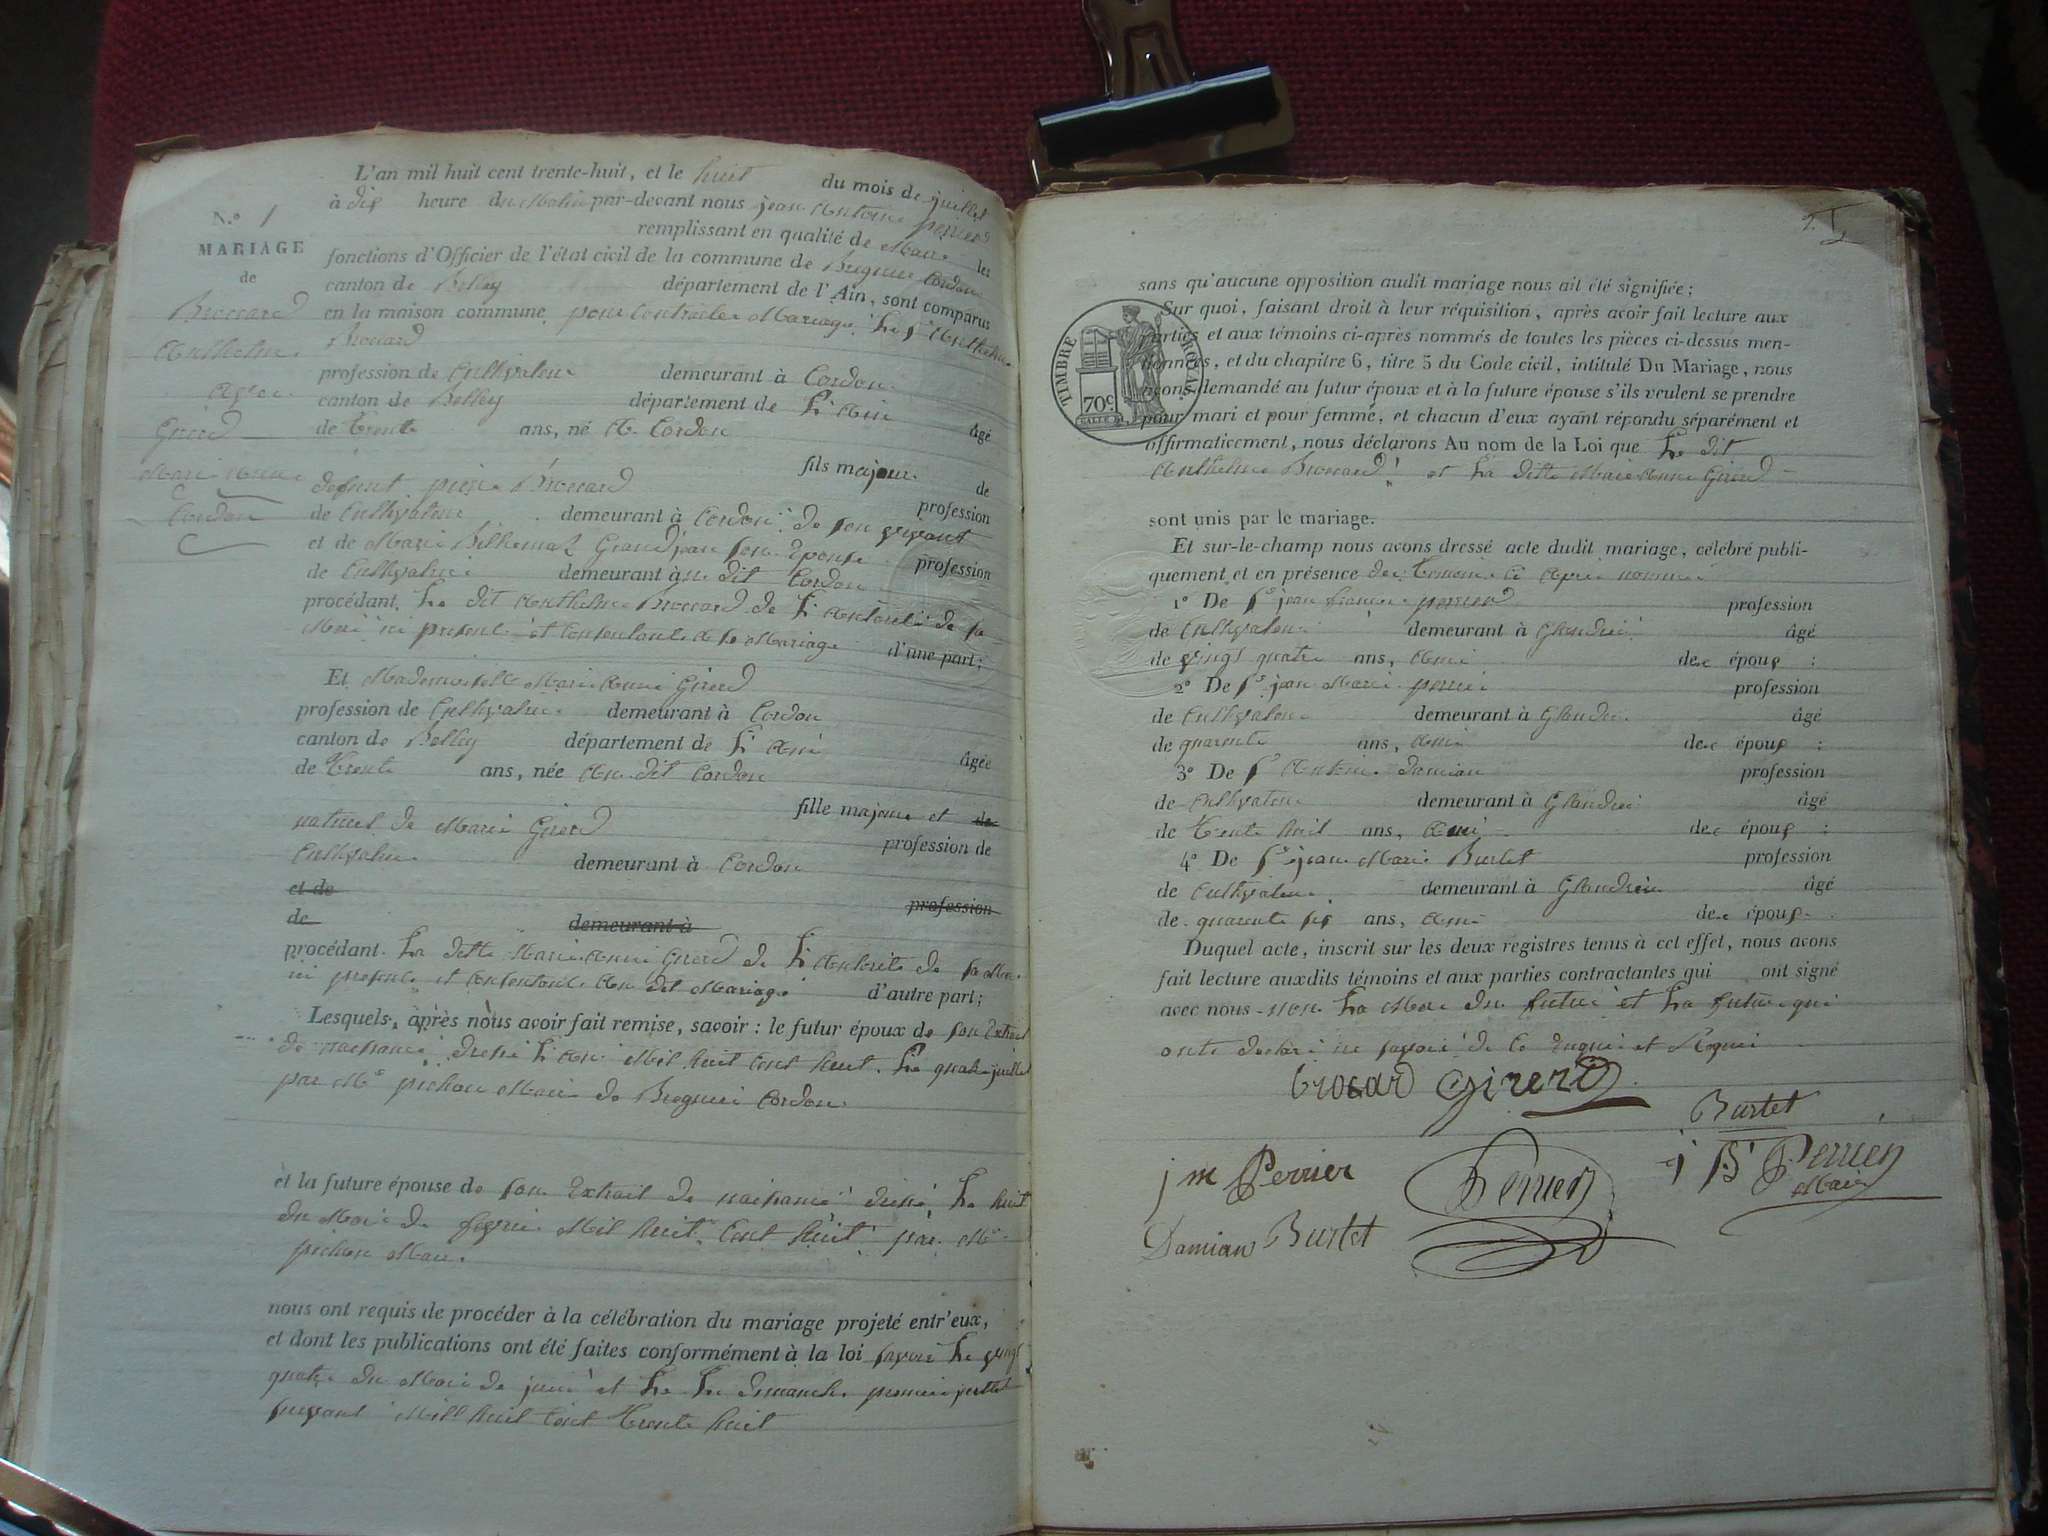 L'an mil huit cent trente-huit, et le huit du mois de juillet
à dix heure du Matin par-devant nous jean Antoine perrier
remplissant en qualité de Maire les
N.º 1
MARIAGE
de
Brocard
Anthelme
Avec
Girerd
Marie Anne
Cordon
fonctions d'Officier de l'état civil de la commune de Bregnier Cordon
canton de Belley département de l'Ain, sont comparus
en la maison commune pour Contracter Mariage Le Sr Anthelme
Brocard
profession de Cultivateur demeurant à Cordon
canton de Belley département de L'Ain âgé
de trente ans, né A Cordon
fils majeur de
defunt pierre Brocard profession
de Cultivateur demeurant à Cordon de son vivant
et de Marie Grandjean son Epouse profession
de Cultivatrice demeurant au dit Cordon
procédant Le dit Anthelme Brocard de L'Autorité de sa
Mère ici presente et Consentante à Ce Mariage d'une part;
Et Mademoiselle Marie Anne Girerd
profession de Cultivatrice demeurant à Cordon
canton de Belley département de L'Ain âgée
de trente ans, née Au dit Cordon
fille majeure et de
naturel de Marie Girerd profession de
Cultivatrice demeurant à Cordon
et de profession
de demeurant à
procédant La dette Marie Anne Girerd de L'Autorité de sa Mère
ici presente et Consentante Au dit Mariage d'autre part;
Lesquels, après nous avoir fait remise, savoir: le futur époux de son Extrait
de naissance dressé L'an Mil huit Cent huit Le quatre juillet
par Mr pichon Maire de Bregnier Cordon
et la future épouse de son Extrait de naissance dressé Le huit
du Mois de fevrier Mil huit Cent huit par Mr
pichon Maire
nous ont requis de procéder à la célébration du mariage projeté entr'eux,
et dont les publications ont été faites conformément à la loi savoir Le vingt
quatre du Mois de juin et Le dimanche premier juillet
suivant Mill huit Cent trente huit
sans qu'aucune opposition audit mariage nous ait été signifiée;
TIMBRE ROYAL
70c
Sur quoi, faisant droit à leur réquisition, après avoir fait lecture aux
parties et aux témoins ci-après nommés de toutes les pièces ci-dessus men-
tionnées, et du chapitre 6, titre 5 du Code civil, intitulé Du Mariage, nous
avons demandé au futur époux et à la future épouse s'ils veulent se prendre
pour mari et pour femme, et chacun d'eux ayant répondu séparément et
affirmativement, nous déclarons Au nom de la Loi que Le dit
Anthelme Brocard et La dette Marie Anne Girerd
sont unis par le mariage.
Et sur-le-champ nous avons dressé acte dudit mariage, célébré publi-
quement et en présence des temoins Ci Après nommés
1º De Sr jean francois perrier profession
de Cultivateur demeurant à Glandieu âgé
de vingt quatre ans, Ami des époux ;
2º De Sr jean Marie perrier profession
de Cultivateur demeurant à Glandieu âgé
de quarente ans, Ami des époux ;
3º De Sr Antoine damian profession
de Cultivateur demeurant à Glandieu âgé
de trente huit ans, Ami des époux ;
4º De Sr jean Marie Burlet profession
de Cultivateur demeurant à Glandieu âgé
de quarente six ans, Ami des époux
Duquel acte, inscrit sur les deux registres tenus à cet effet, nous avons
fait lecture auxdits témoins et aux parties contractantes qui ont signé
avec nous non La Mère du futur et La future qui
ont declaré ne savoir de Ce Enquis et Requis
brocard Girerd
Burlet
j m Perrier Perrier Perrier
Maire
Damian Burlet